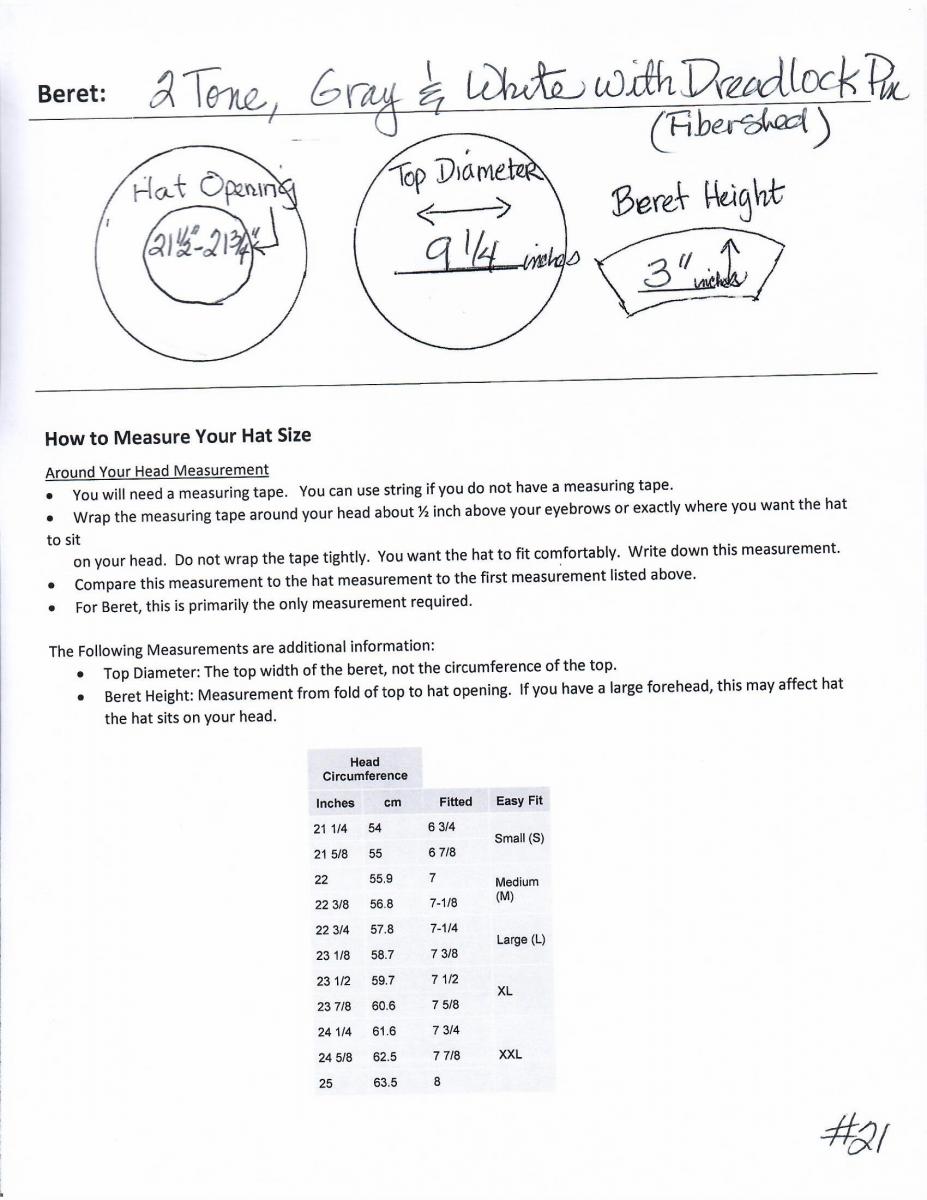 Beret: 2 Tone, Gray & White with Dreadlock Pin
(Fibershed)
Hat Opening
21½"-21¾"
Top Diameter
9 1/4 inches
Beret Height
3" inches
How to Measure Your Hat Size
Around Your Head Measurement
• You will need a measuring tape. You can use string if you do not have a measuring tape.
• Wrap the measuring tape around your head about ½ inch above your eyebrows or exactly where you want the hat
to sit
on your head. Do not wrap the tape tightly. You want the hat to fit comfortably. Write down this measurement.
• Compare this measurement to the hat measurement to the first measurement listed above.
• For Beret, this is primarily the only measurement required.
The Following Measurements are additional information:
• Top Diameter: The top width of the beret, not the circumference of the top.
• Beret Height: Measurement from fold of top to hat opening. If you have a large forehead, this may affect hat
the hat sits on your head.
Head
Circumference
Inches cm Fitted Easy Fit
21 1/4 54 6 3/4
Small (S)
21 5/8 55 6 7/8
22 55.9 7
Medium
(M)
22 3/8 56.8 7-1/8
22 3/4 57.8 7-1/4
Large (L)
23 1/8 58.7 7 3/8
23 1/2 59.7 7 1/2
XL
23 7/8 60.6 7 5/8
24 1/4 61.6 7 3/4
24 5/8 62.5 7 7/8 XXL
25 63.5 8
#21